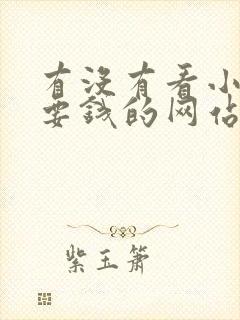 有没有看小
要钱的网站
紫玉箫